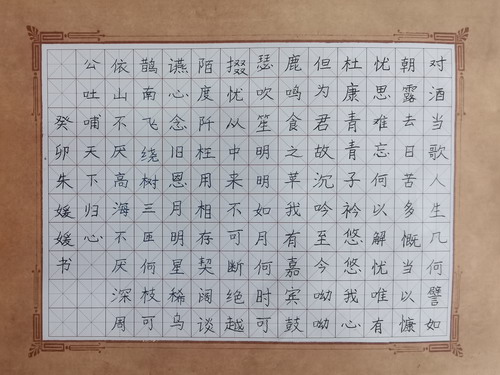 对酒当歌人生几何譬如
朝露去日苦多慨当以慷
忧思难忘何以解忧唯有
杜康青青子衿悠悠我心
但为君故沉吟至今呦呦
鹿鸣食之苹我有嘉宾鼓
瑟吹笙明明如月何时可
掇忧从中来不可断绝越
陌度阡枉用相存契阔谈
䜩心念旧恩月明星稀乌
鹊南飞绕树三匝何枝可
依山不厌高海不厌深周
公吐哺天下归心
癸卯朱媛媛书